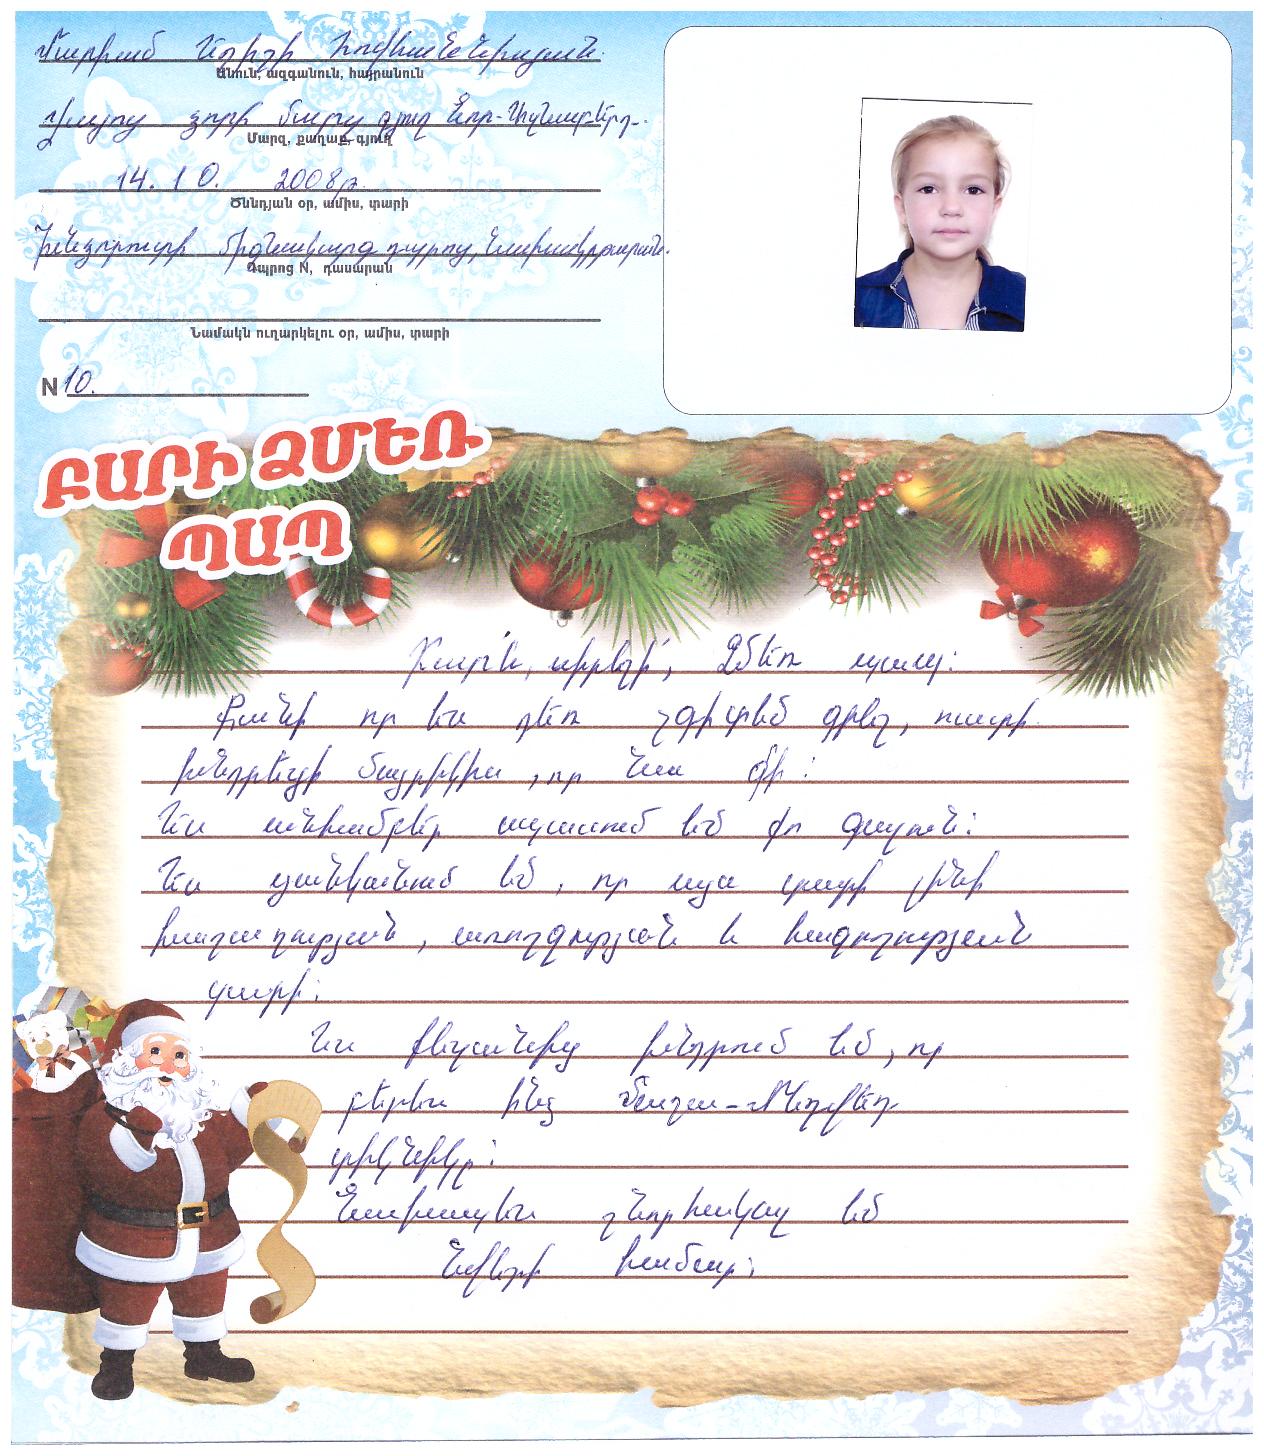 Մարիամ Ադիդի Հովհաննիսյան
Անուն, ազգանուն, հայրանուն
Վայոց ձորի մարզ գյուղ Նոր-Ազնաբերդ
Մարզ, քաղաք, գյուղ
14. 10. 2008թ.
Ծննդյան օր, ամիս, տարի
Խնձորուտի միջնակարգ դպրոց, նախակրթարան.
Դպրոց N, դասարան
Նամակն ուղարկելու օր, ամիս, տարի
N 10.
ԲԱՐԻ ՁՄԵՌ
ՊԱՊ
Բարև, սիրելի՛, Ձմեռ պապ:
Քանի որ ես դեռ չգիտեմ գրել, ուստի
խնդրեցի մայրիկիս, որ նա գրի:
Ես անհամբեր սպասում եմ քո գալուն:
Ես ցանկանում եմ, որ այս տարի լինի
խաղաղության, առողջության և հաջողության
տարի:
Ես քեզանից խնդրում եմ, որ
բերես ինձ Մաշա-Մեդվեդ
տիկնիկը:
Նախապես շնորհակալ եմ
նվերի համար: